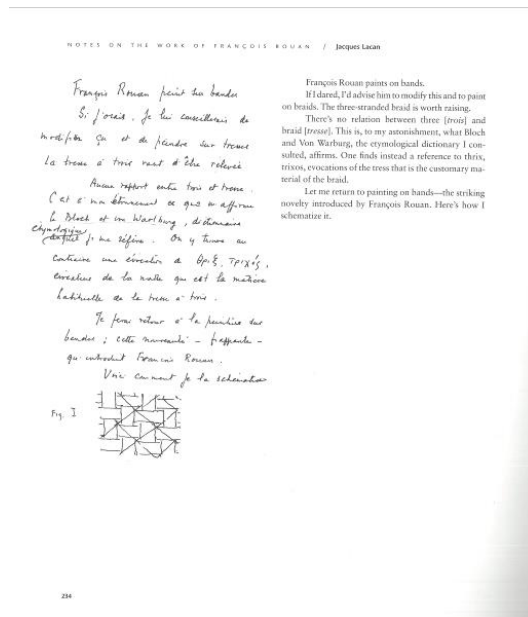 NOTES ON THE WORK OF FRANÇOIS ROUAN / Jacques Lacan
François Rouan peint sur bandes
Si j'osais, je lui conseillerais de
modifier ça et de peindre sur tresses
La tresse à trois vaut d'être relevée
Aucun rapport entre trois et tresse.
C'est à mon étonnement ce que m'affirme
le Bloch et von Wartburg, dictionnaire
étymologique
auquel je me réfère. On y trouve au
contraire une évocation de θρίξ, τριχός,
évocation de la natte qui est la matière
habituelle de la tresse à trois.
Je ferai retour à la peinture sur
bandes ; cette nouveauté - frappante -
qu'introduit François Rouan.
Voici comment je la schématise
Fig. I
François Rouan paints on bands.
If I dared, I'd advise him to modify this and to paint
on braids. The three-stranded braid is worth raising.
There's no relation between three [trois] and
braid [tresse]. This is, to my astonishment, what Bloch
and Von Warburg, the etymological dictionary I con-
sulted, affirms. One finds instead a reference to thrix,
trixos, evocations of the tress that is the customary ma-
terial of the braid.
Let me return to painting on bands—the striking
novelty introduced by François Rouan. Here's how I
schematize it.
234